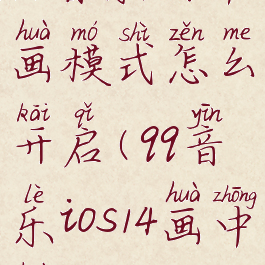 huà mó shì zěn me
画模式怎么
kāi qǐ yīn
开启(99音
lè huà zhōng
乐iOS14画中